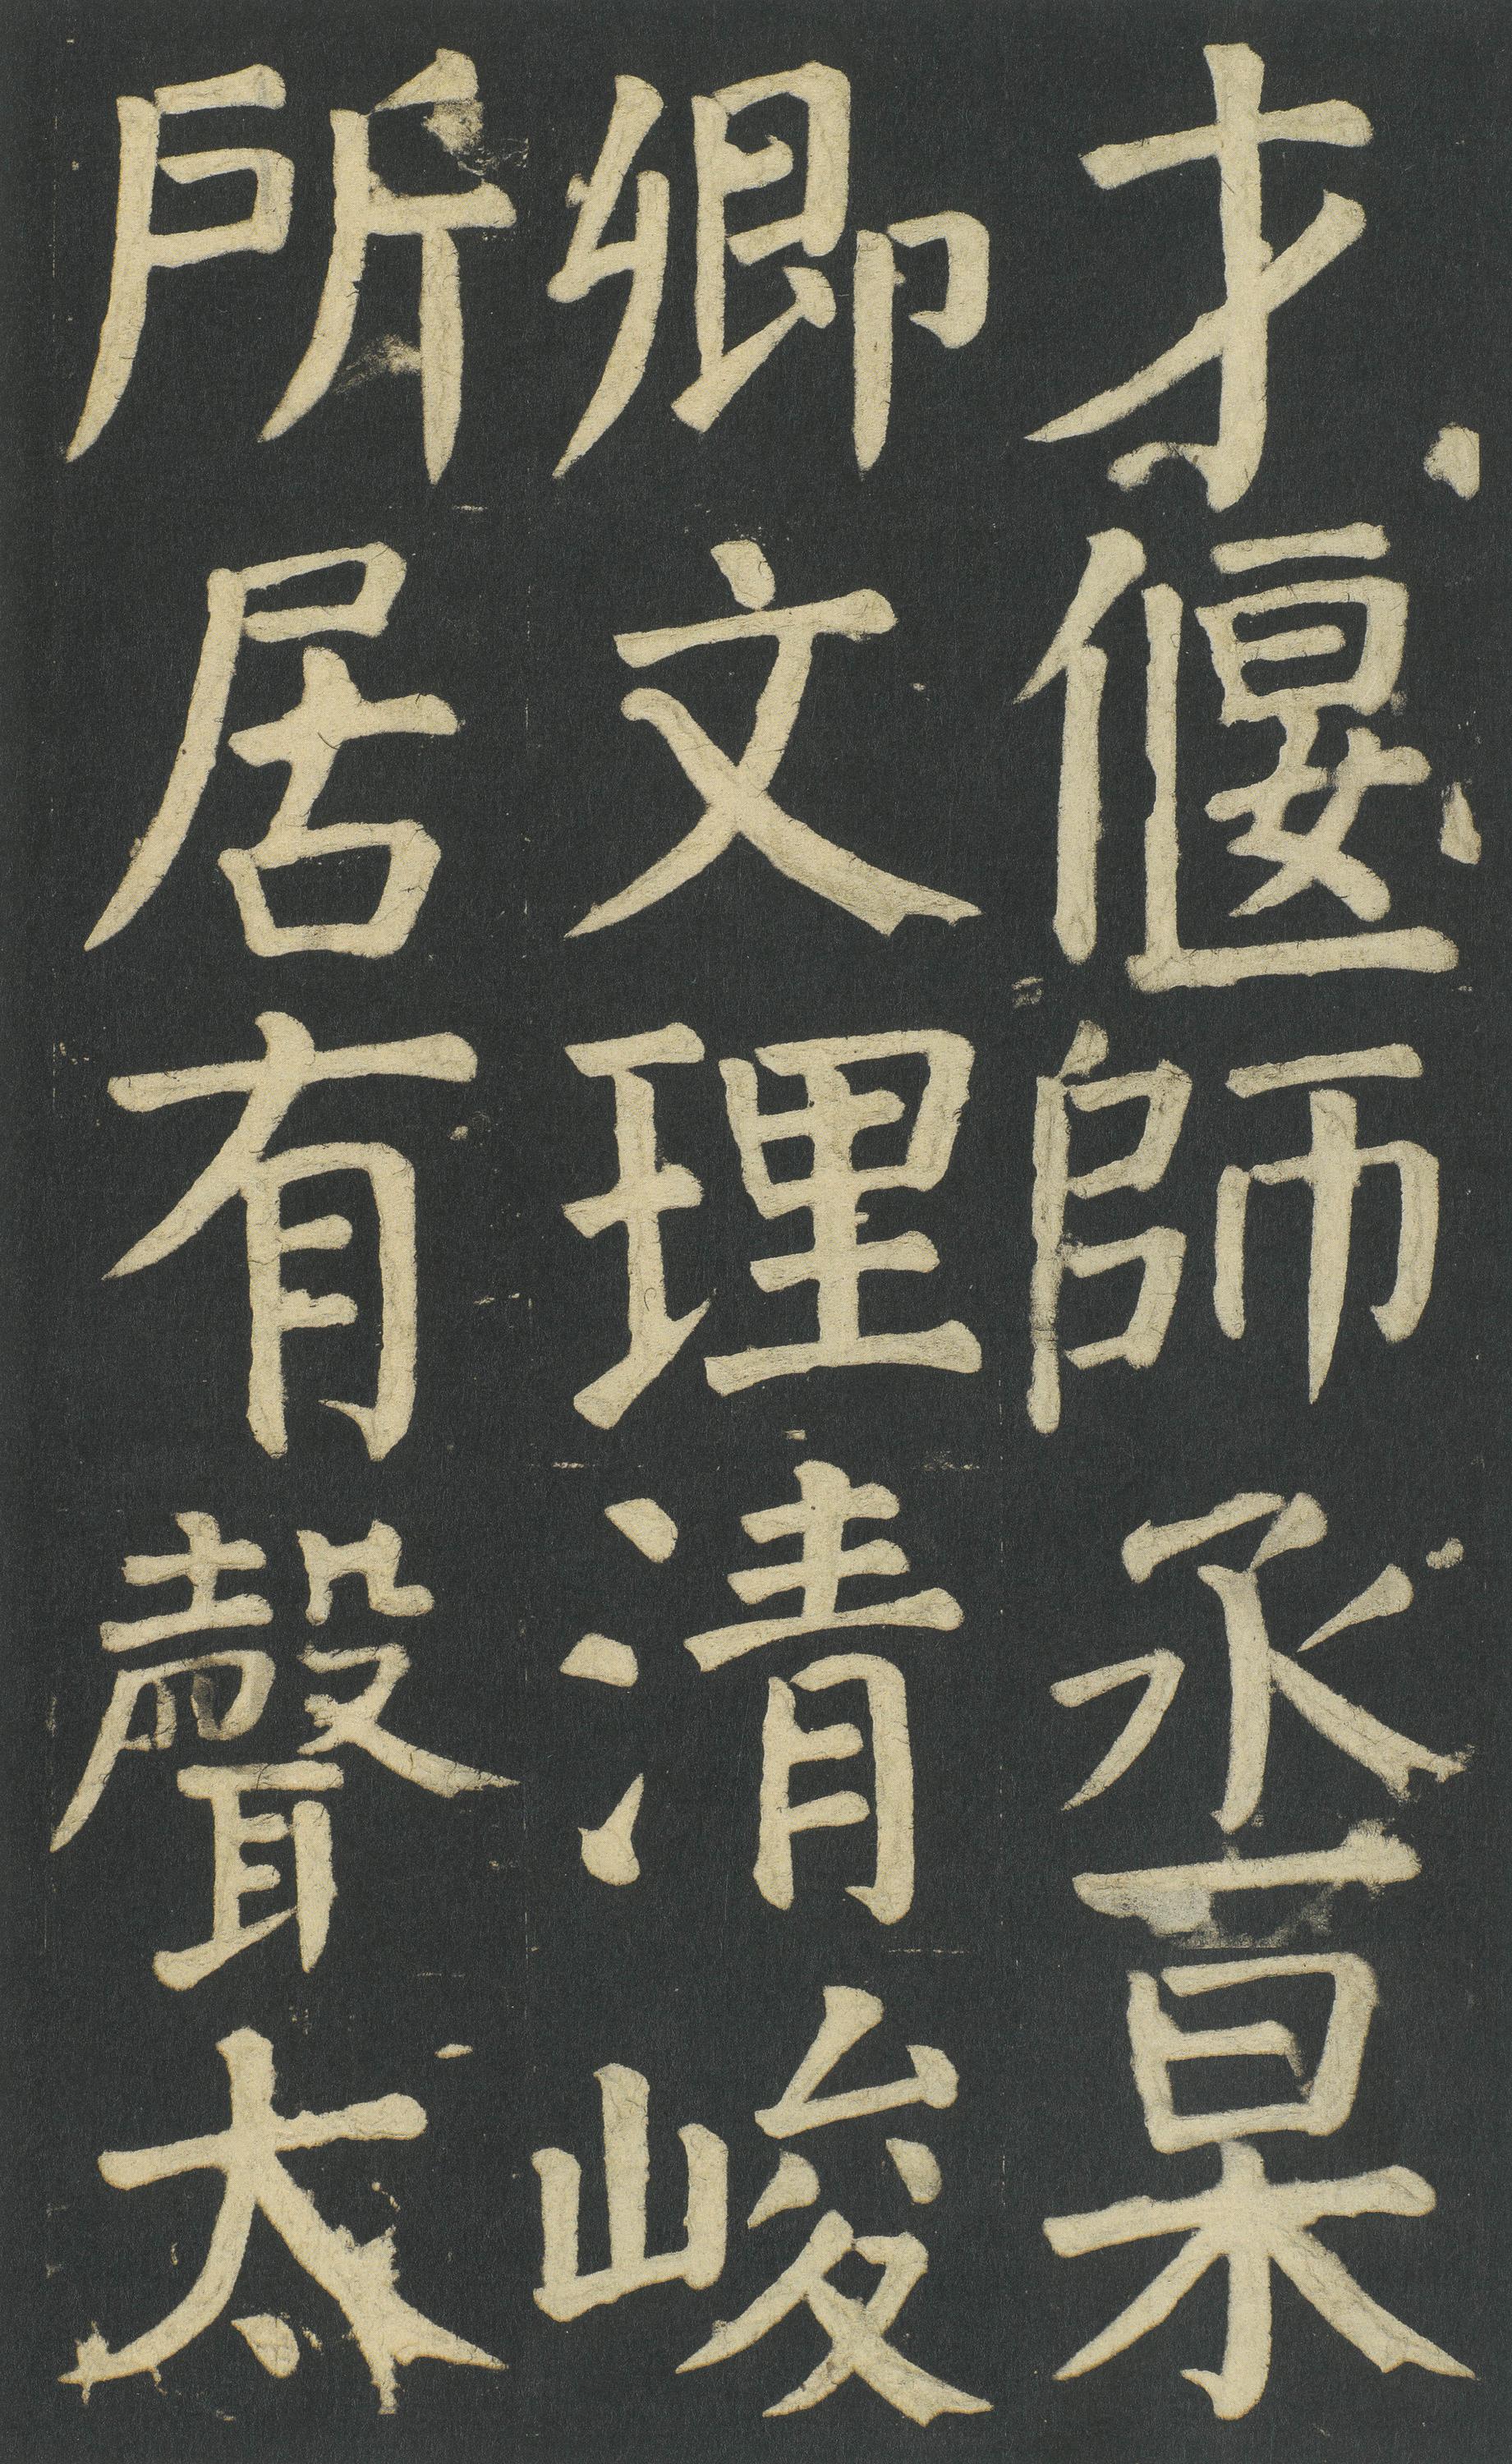 才偃師丞杲
卿文理清峻
所居有聲太